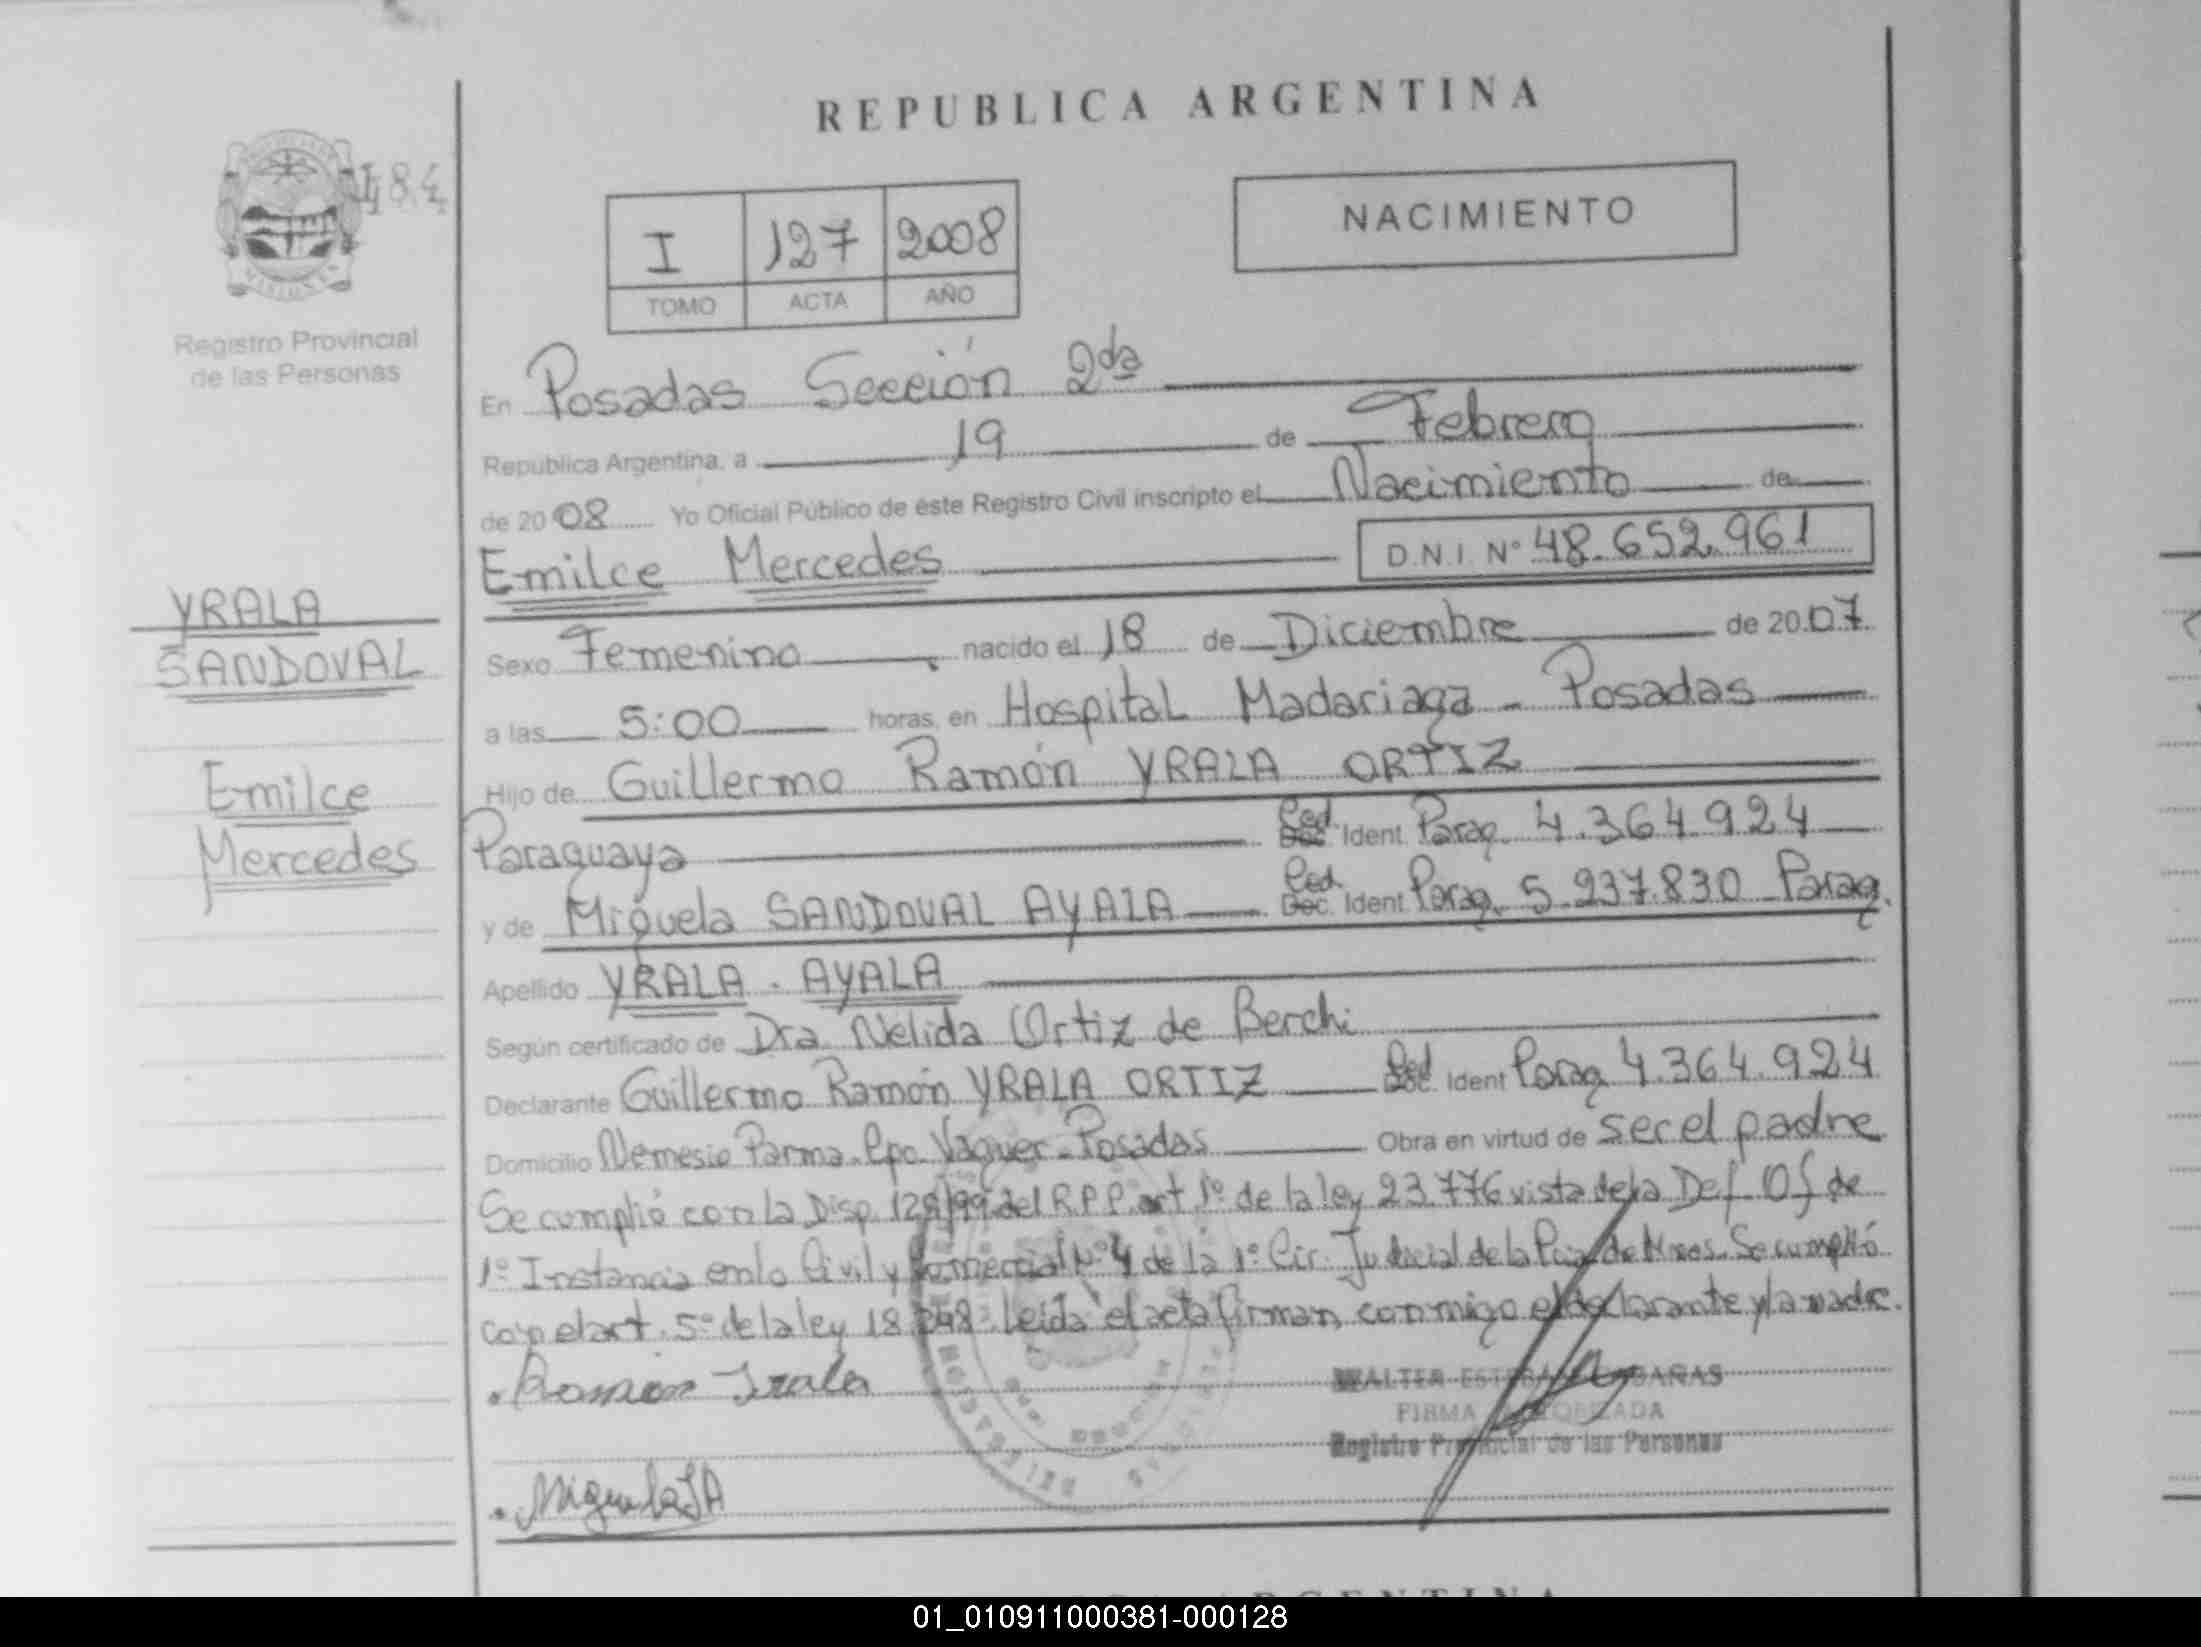 REPUBLICA ARGENTINA
184
I 127 2008
TOMO ACTA AÑO
NACIMIENTO
Registro Provincial
de las Personas
En Posadas Sección 2da
Republica Argentina, a 19 de Febrero
de 2008 Yo Oficial Público de éste Registro Civil inscripto el Nacimiento de
Emilce Mercedes D.N.I. Nº 48.652.961
YRALA
SANDOVAL
Emilce
Mercedes
Sexo Femenino nacido el 18 de Diciembre de 2007
a las 5:00 horas, en Hospital Madariaga - Posadas
Hijo de Guillermo Ramón YRALA ORTIZ
Paraguaya Ced. Ident. Parag. 4.364.924
y de Miguela SANDOVAL AYALA Ced. Doc. Ident Parag. 5.237.830 Parag.
Apellido YRALA - AYALA
Según certificado de Dra. Nelida Ortiz de Berchi
Declarante Guillermo Ramón YRALA ORTIZ Ced. Ident Parag 4.364.924
Domicilio Nemesio Parma. Cpo. Vaquer - Posadas Obra en virtud de ser el padre
Se cumplió con la Disp. 128/99 del R.P.P. art 1º de la ley 23.776 vista de la Def. Of de
1º Instancia en lo Civil y Comercial Nº 4 de la 1º Cir. Judicial de la Pcia de Mnes. Se cumplió
con el art. 5º de la ley 18.248. Leída el acta firman, conmigo el declarante y la madre.
Ramón Irala
WALTER ESTEBAN
FIRMA AUTORIZADA
Registro Provincial de las Personas
Miguela S A
ARGENTINA
01_010911000381-000128